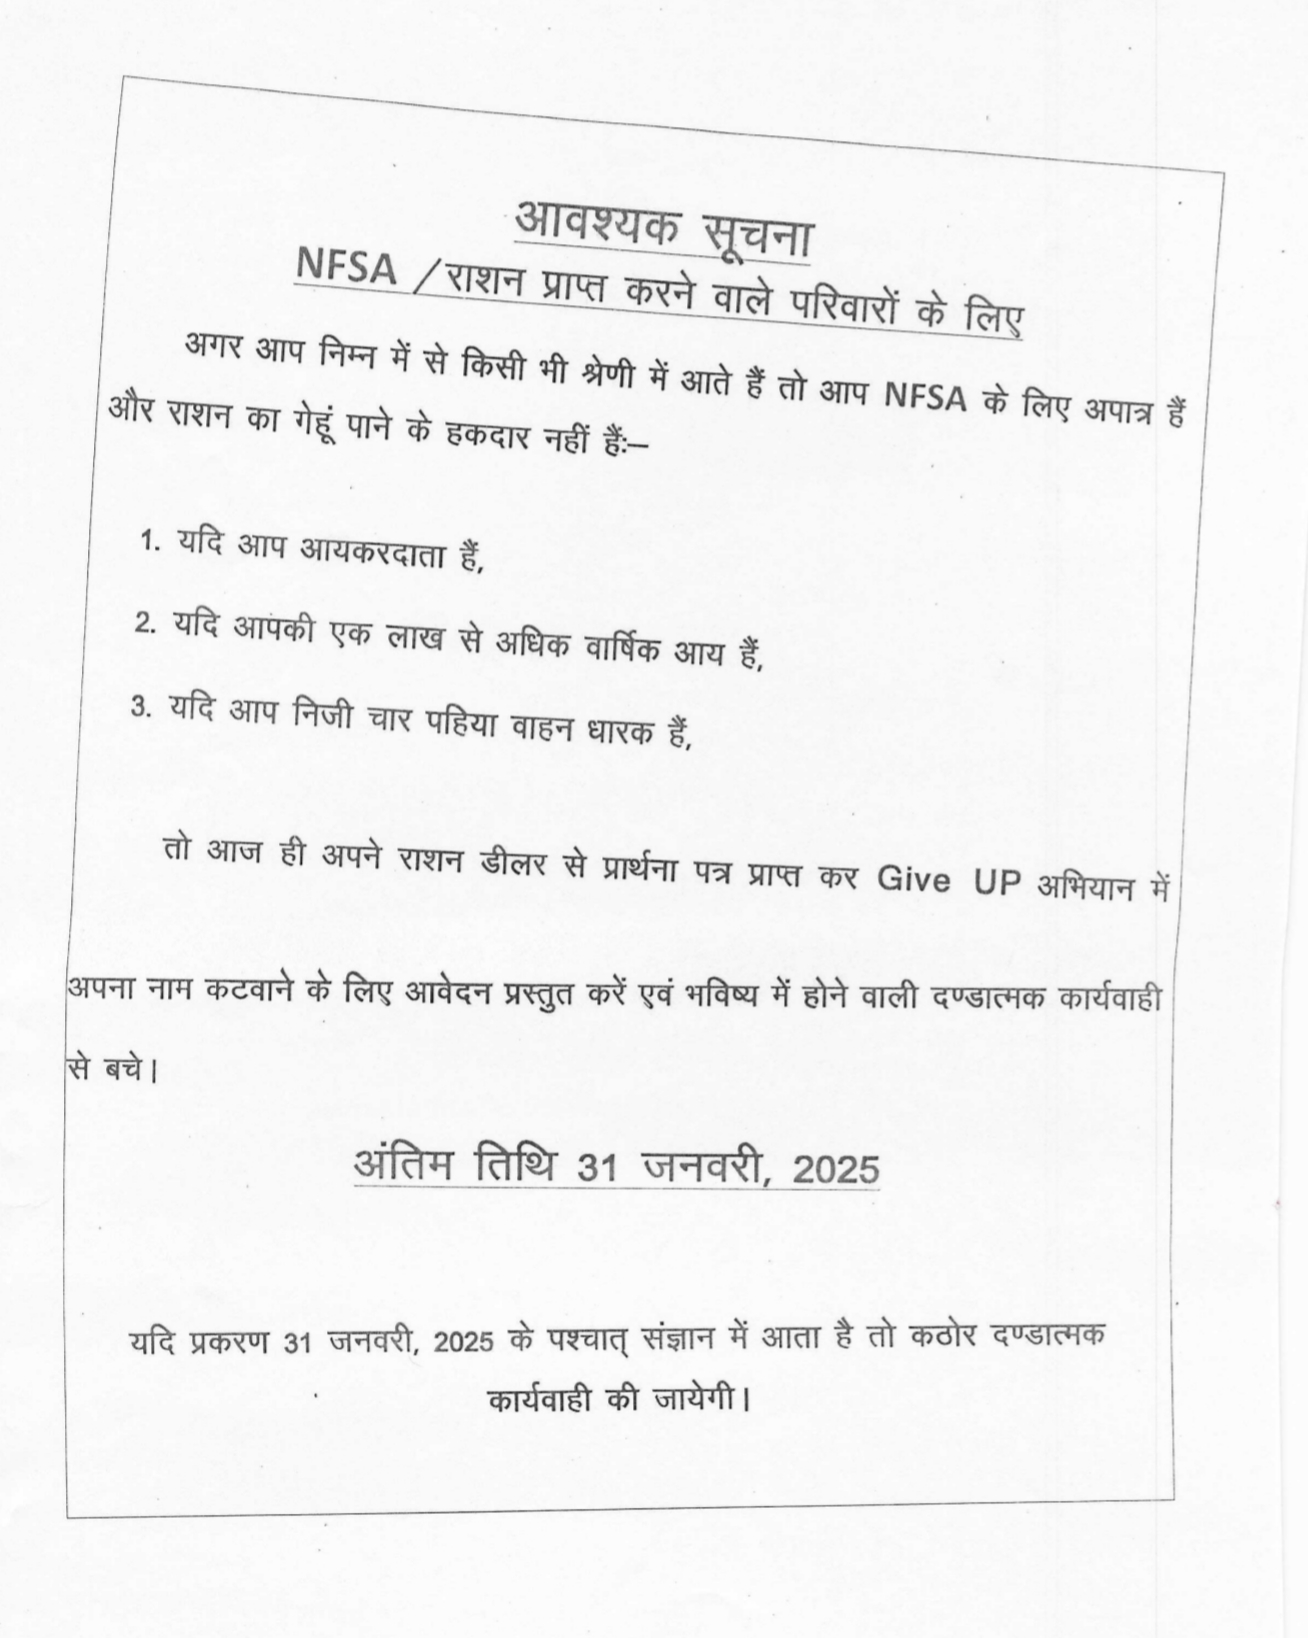 आवश्यक सूचना
NFSA /राशन प्राप्त करने वाले परिवारों के लिए
अगर आप निम्न में से किसी भी श्रेणी में आते हैं तो आप NFSA के लिए अपात्र हैं
और राशन का गेहूं पाने के हकदार नहीं हैं:–
1. यदि आप आयकरदाता हैं,
2. यदि आपकी एक लाख से अधिक वार्षिक आय हैं,
3. यदि आप निजी चार पहिया वाहन धारक हैं,
तो आज ही अपने राशन डीलर से प्रार्थना पत्र प्राप्त कर Give UP अभियान में
अपना नाम कटवाने के लिए आवेदन प्रस्तुत करें एवं भविष्य में होने वाली दण्डात्मक कार्यवाही
से बचे।
अंतिम तिथि 31 जनवरी, 2025
यदि प्रकरण 31 जनवरी, 2025 के पश्चात् संज्ञान में आता है तो कठोर दण्डात्मक
कार्यवाही की जायेगी।